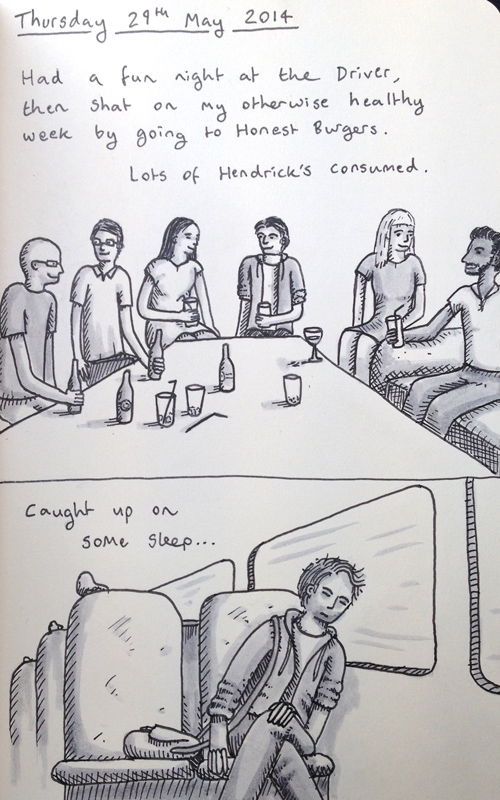 Thursday 29th May 2014
Had a fun night at the Driver,
then shat on my otherwise healthy
week by going to Honest Burgers.
Lots of Hendrick's consumed.
Caught up on
some sleep...